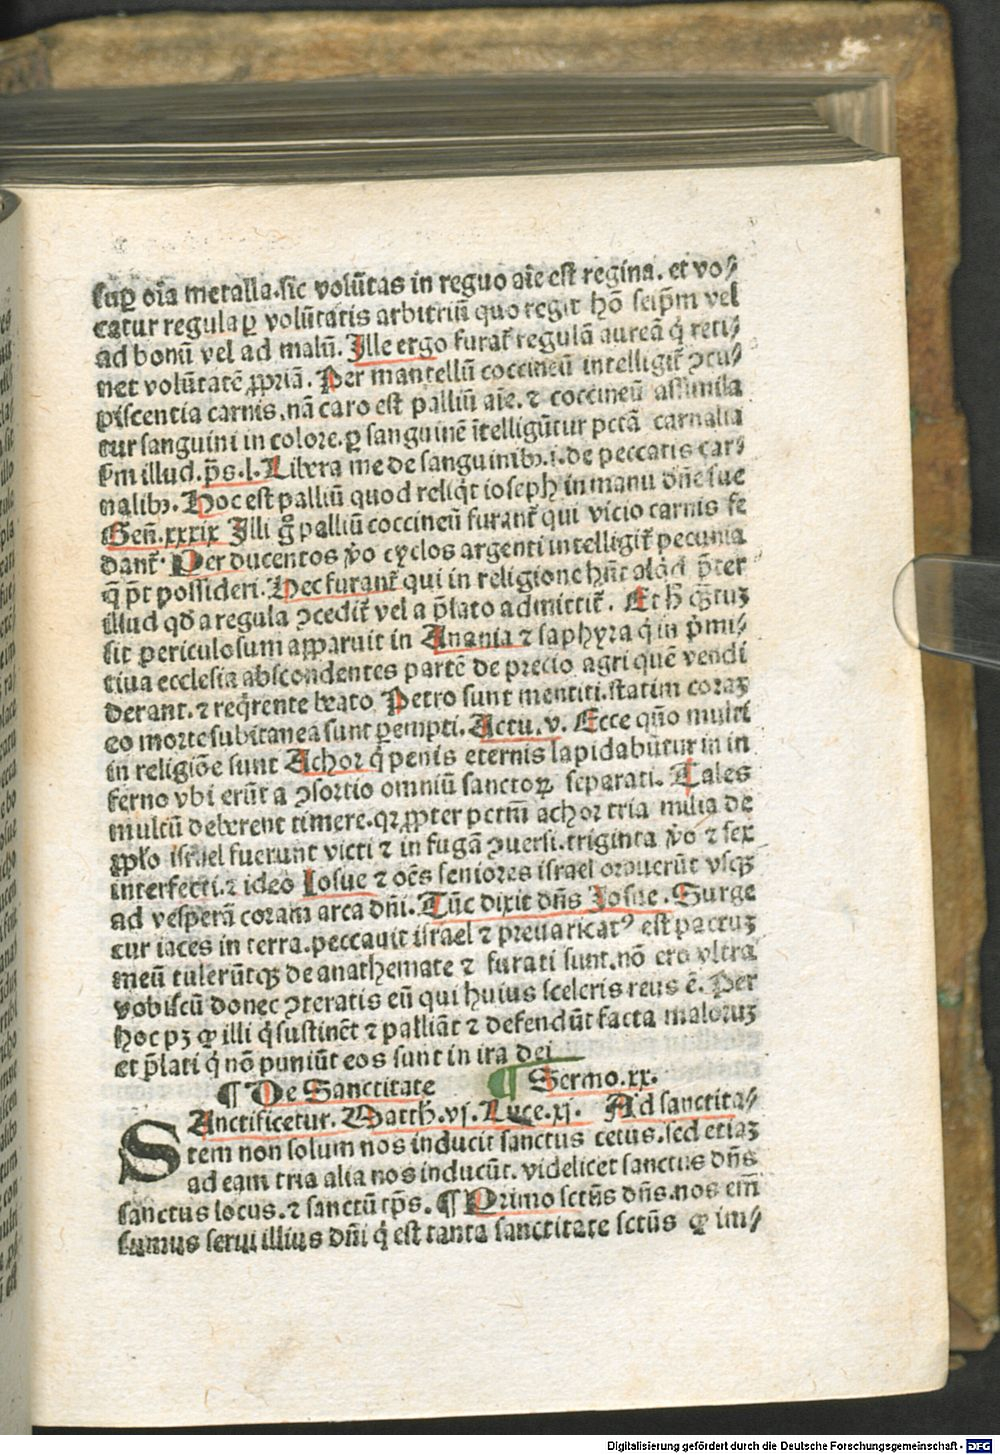 suꝑ oı̄a metalla.sic volūtas in reguo aı̄e est regina. et vo⸗
catur regula ꝑ volūtatis arbitriū quo regit hō seip̄m vel
ad bonū vel ad malū. Ille ergo furat᷑ regulā aureā q̇ reti⸗
net volūtatē ꝓpriā. Per mantellū coccineū intelligit᷑ ꝯcu⸗
piscentia carnis.nā caro est palliū aı̄e. ⁊ coccineū assimila
tur sanguini in colore.ꝑ sanguinē ītelligūtur pctā carnalia
s̄m illud.p̄s.l.Libera me de sanguinibꝫ.i.de peccatis car⸗
nalibꝫ. Hoc est palliū quod reliq̇t ioseph in manu dn̄e sue
Geñ.xxxix Illi g̊ palliū coccineū furant᷑ qui vicio carnis fe
dant᷑. Per ducentos v̊o cyclos argenti intelligit᷑ pecunia
q̄ p̄t possideri. Hec furant᷑ qui in religione hn̄t aliq̇d p̄ter
illud qd̄ a regula ꝯcedit᷑ vel a p̄lato admittit᷑. Et h̄ q̄ꝫtuꝫ
sit periculosum apparuit in Anania ⁊ saphyra q̇ in p̄mi⸗
tiua ecclesia abscondentes partē de precio agri quē vendi
derant.⁊ req̇rente beato Petro sunt mentiti.statim coraꝫ
eo morte subitanea sunt ꝑempti. Actu.v. Ecce quō multi
in religiōe sunt Achor q̇ penis eternis lapidabūtur in in
ferno vbi erūt a ꝯsortio omniū sanctoꝝ separati. Tales
multū deberent timere.qꝛ ꝓpter pctm̄ achor tria milia de
ꝓpl̄o israel fuerunt victi ⁊ in fugā ꝯuersi.triginta v̊o ⁊ sex
interfecti.⁊ ideo Iosue ⁊ oēs seniores israel orauerūt vsqꝫ
ad vesperā coram arca dn̄i. Tūc dixit dn̄s Iosue .Surge
cur iaces in terra.peccauit israel ⁊ preuaricatꝰ est pactuꝫ
meū tulerūtqꝫ de anathemate ⁊ furati sunt.nō ero vltra
vobiscū donec ꝯteratis eū qui huius sceleris reus ē. Per
hoc pꝫ ꝙ illi q̇ sustinēt ⁊ palliāt ⁊ defendūt facta maloruꝫ
et p̄lati q̇ nō puniūt eos sunt in ira dei
¶ De Sanctitate ¶ Sermo.xx.
SAnctificetur. Matth.vj.Luce.xj. Ad sanctita⸗
tem non solum nos inducit sanctus cetus.sed etiaꝫ
ad eam tria alia nos inducūt. videlicet sanctus dn̄s
sanctus locus. ⁊ sanctū tp̄s. ¶ Primo sctūs dn̄s.nos em̄
sumus serui illius dn̄i q̇ est tanta sanctitate sctūs ꝙ im⸗
Digitalisierung gefördert durch die Deutsche Forschungsgemeinschaft - DFG